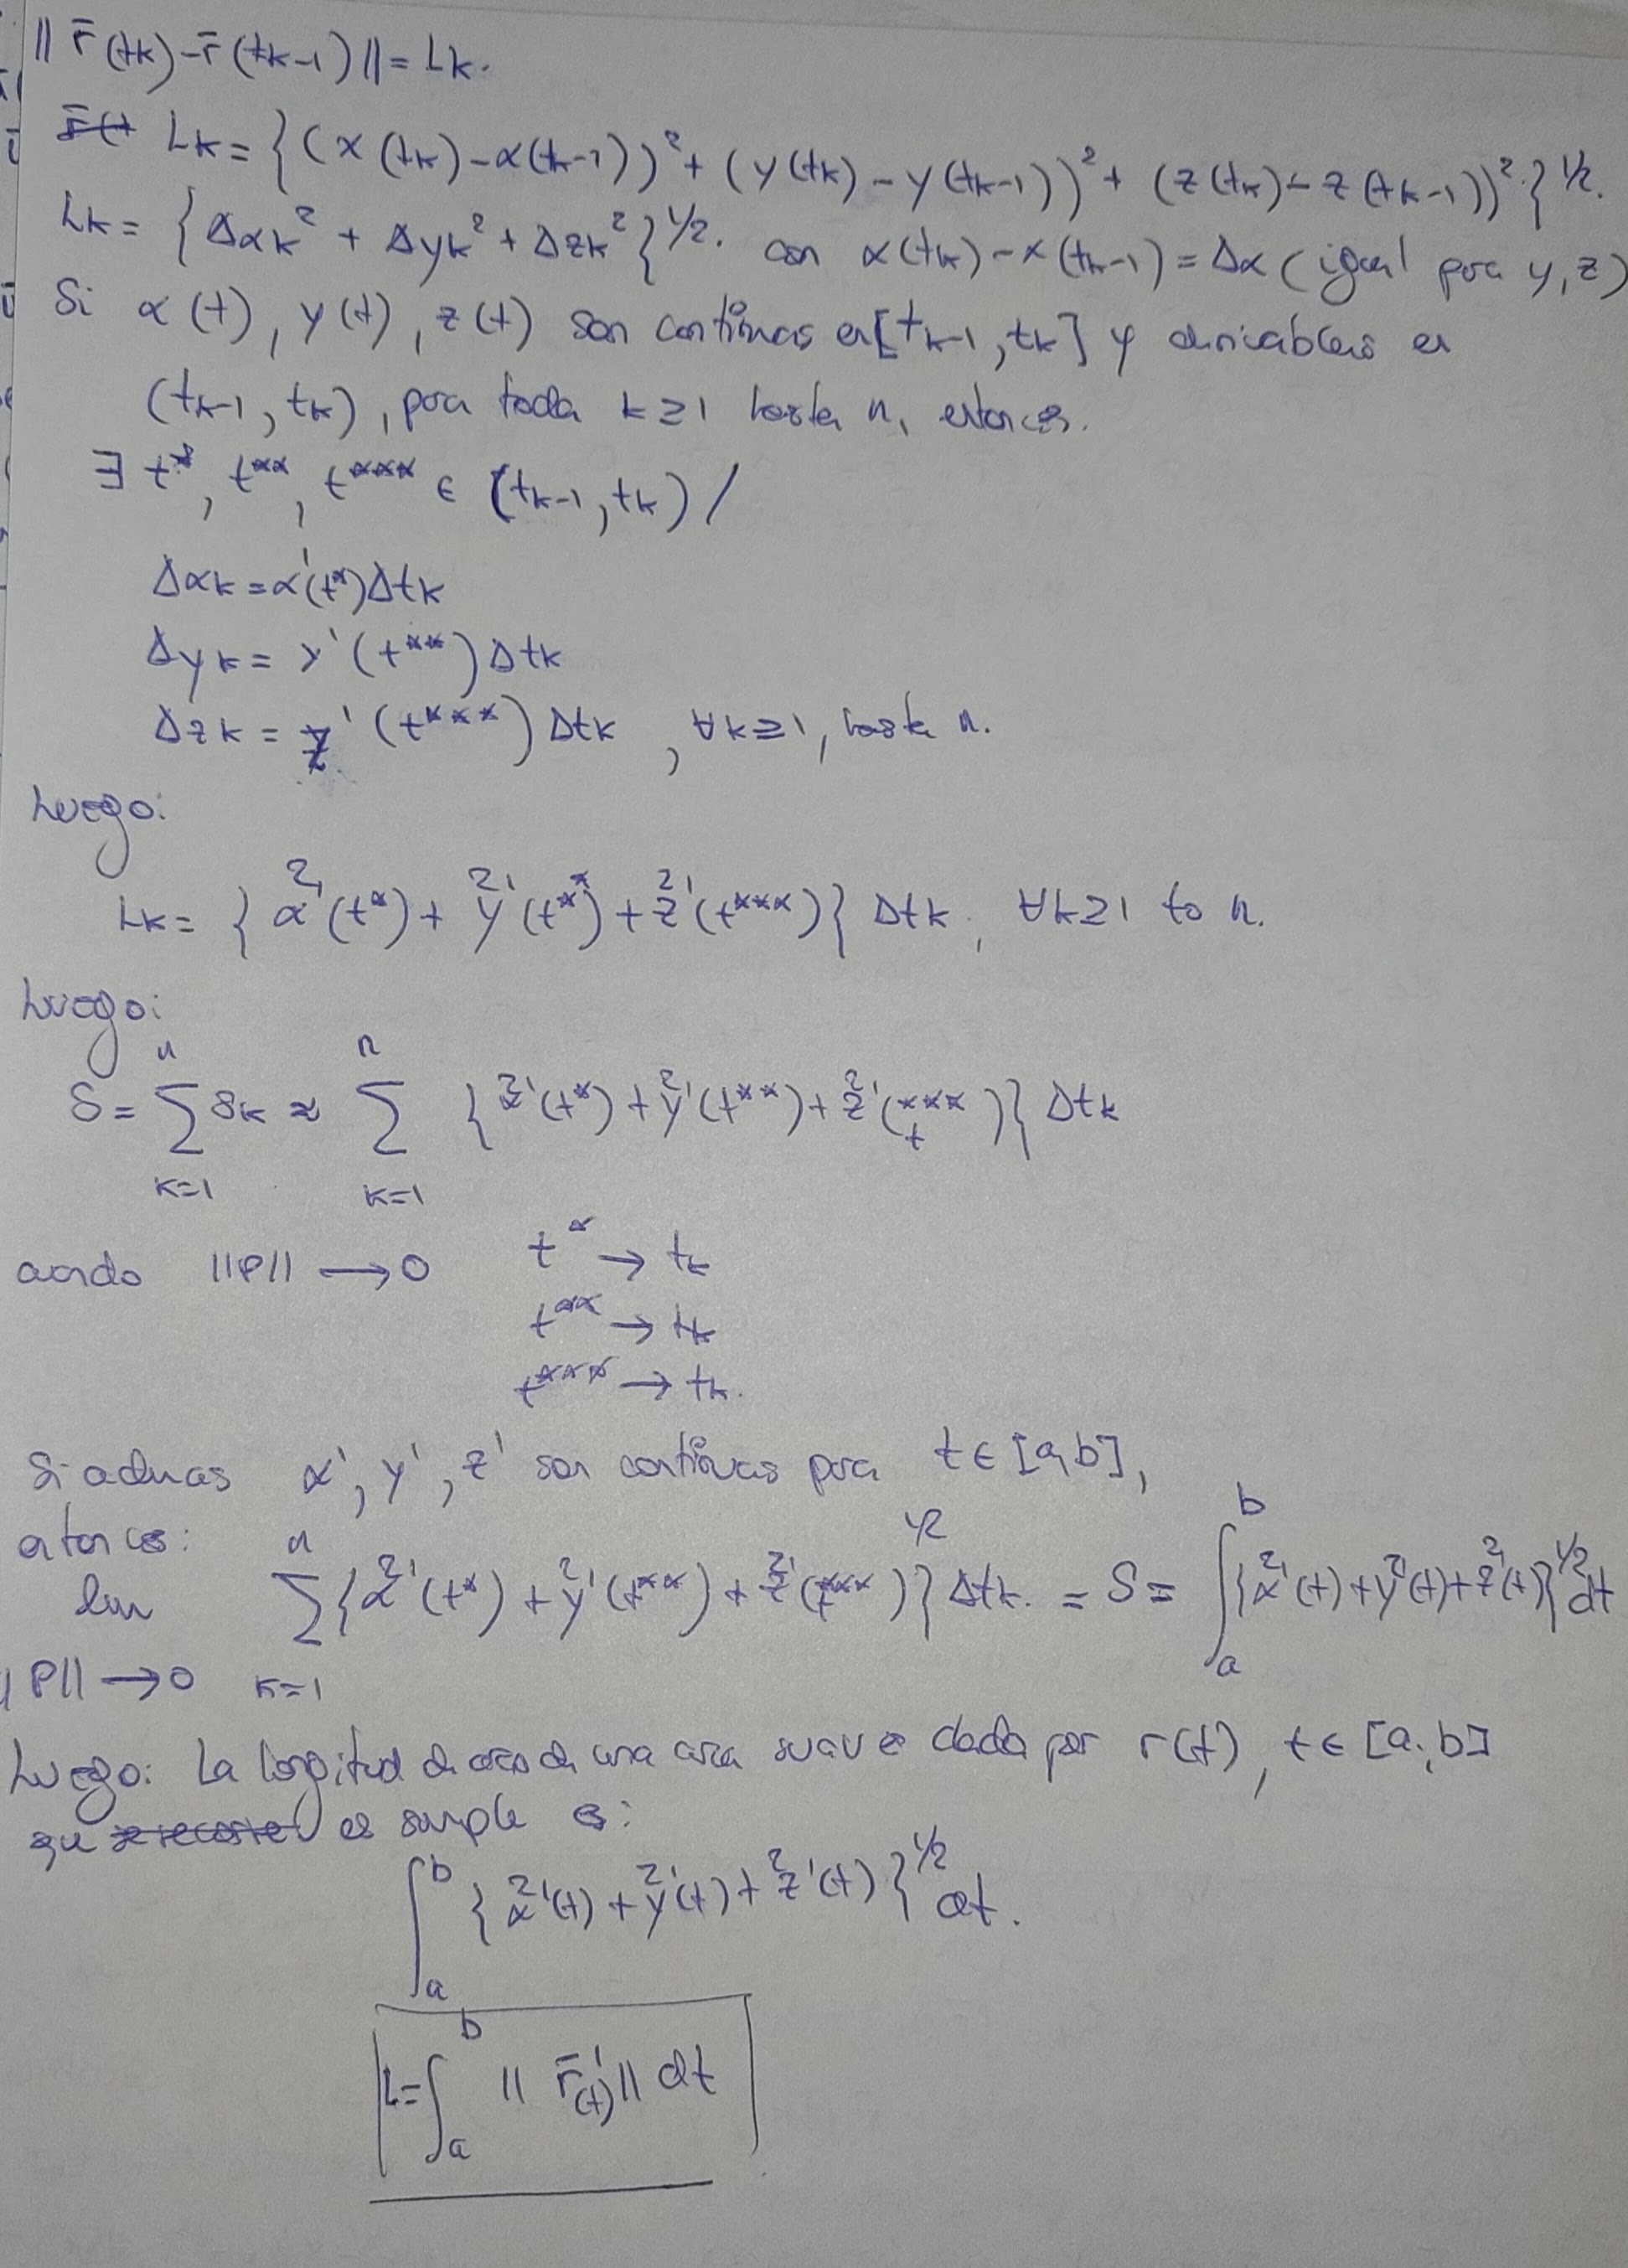 || r̄(tk) - r̄(tk-1) || = Lk.
Lk = { (x(tk) - x(tk-1))² + (y(tk) - y(tk-1))² + (z(tk) - z(tk-1))² }^1/2.
Lk = { Δxk² + Δyk² + Δzk² }^1/2. con x(tk) - x(tk-1) = Δx (igual para y, z)
Si x(t), y(t), z(t) son continuas en [tk-1, tk] y derivables en
(tk-1, tk), para todo k≥1 hasta n, entonces.
∃ t*, t**, t*** ∈ (tk-1, tk) /
Δxk = x'(t*) Δtk
Δyk = y'(t**) Δtk
Δzk = z'(t***) Δtk , ∀k≥1, hasta n.
Luego:
Lk = { x²'(t*) + y²'(t**) + z²'(t***) } Δtk, ∀k≥1 to n.
Luego:
S = Σ_{k=1}^{n} Sk ≈ Σ_{k=1}^{n} { x²'(t*) + y²'(t**) + z²'(t***) } Δtk
cuando ||P|| → 0 t* → tk
t** → tk
t*** → tk.
Si además x', y', z' son continuas para t ∈ [a,b],
entonces:
lim_{||P|| → 0} Σ_{k=1}^{n} { x²'(t*) + y²'(t**) + z²'(t***) }^1/2 Δtk. = S = ∫_a^b { x²'(t) + y²'(t) + z²'(t) }^1/2 dt
Luego: La longitud de arco de una curva suave dada por r(t), t ∈ [a,b]
que es simple es:
∫_a^b { x²'(t) + y²'(t) + z²'(t) }^1/2 dt.
L = ∫_a^b || r̄'(t) || dt